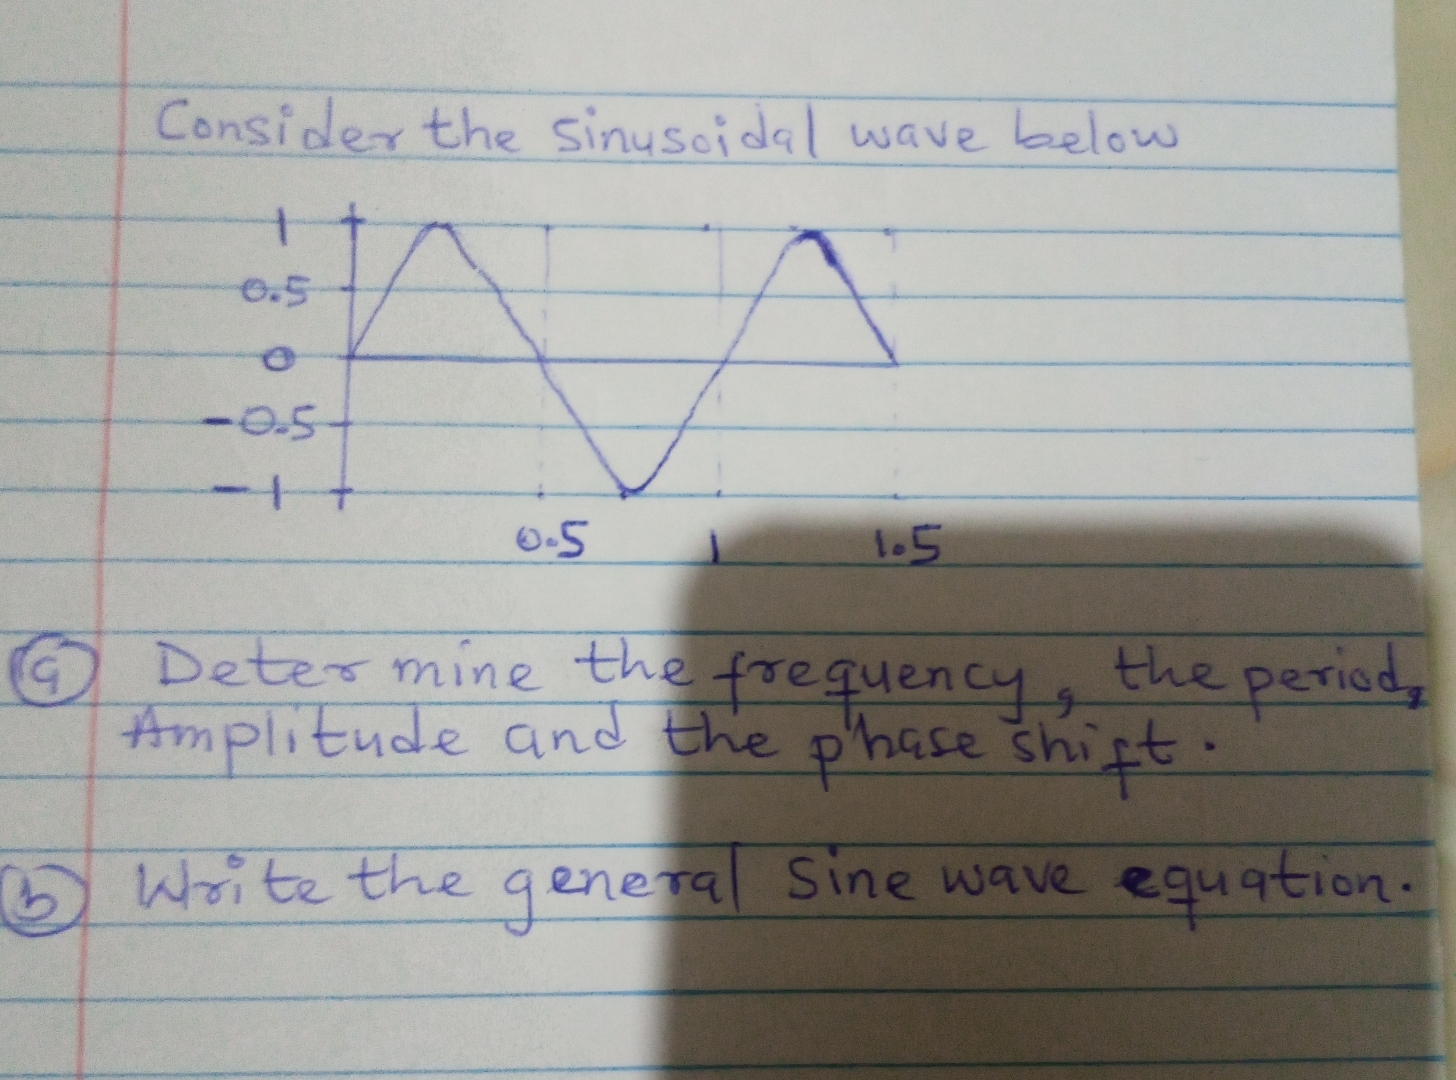 Consider the sinusoidal wave below
1
0.5
0
-0.5
-1
0.5 1 1.5
a Determine the frequency, the period,
Amplitude and the phase shift.
b Write the general sine wave equation.